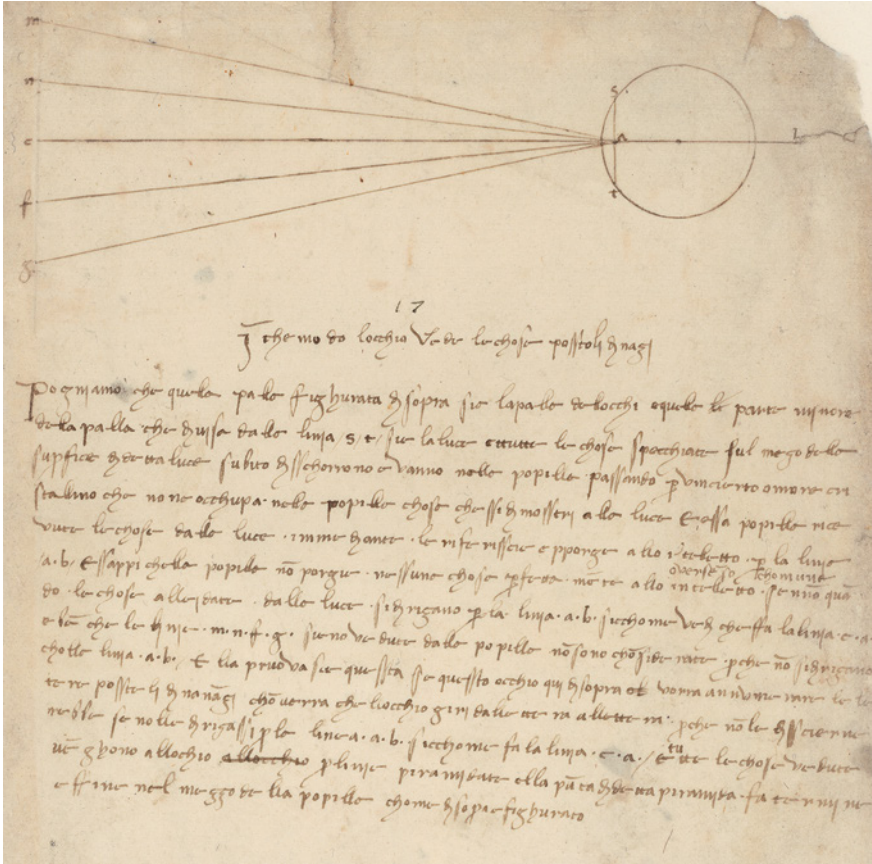 m
n
s
c
a
b
f
t
g
17
In che modo locchio Vede le chose possto li dināzi
Pogniamo che quella palla fighurata di sopra sie la palla dellocchi e quella le parte minore
della palla che divisa dalla linia / s / t / sie la luce ettutte le chose spechiate sul mezo della
supfitie di detta luce subito disschorrono e vanno nella popilla passando p uncierto omore cri
stallino che no ne occhupa nella popilla chose chessi dimosstri alla luce E essa popilla rice
vute le chose dalla luce inmediante le riferisscie e pporgie allo itelletto p la linie
.a.b. Essappi chella popilla nō porgie nessune chose pfetta mēte allo intelletto overo sēso chomune se nno quā
do le chose allei date dalla luce si dirizano p la linia .a.b. sicchome vedi cheffa la linia .c.a.
e bē che le linie .m.n.f.g. sieno vedute dalla popilla nō sono chōsiderate pche nō si dirizano
cholla linia .a.b. E lla pruova sie quessta se quessto occhio qui di sopra vorra annumerare le le
tere posste li dinanāzi chōverra che locchio giri dalettera allettera pche nōle disscierne
rebe se nolle dirizassi p le linea .a.b. sicchome fa la linia .c.a. / E tutte le chose vedute
vēghono allochio allocchio p linie piramidate ella pūta di detta piramida fa termine
e ffine nel mezzo della popilla chome di sopra e fighurato